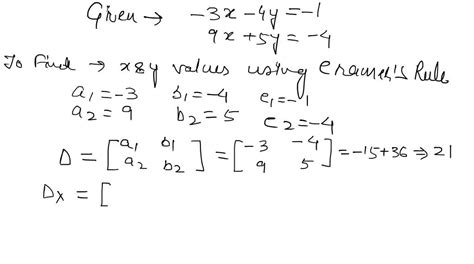 Given → -3x - 4y = -1
9x + 5y = -4
To Find → x & y values using Cramer's Rule
a₁ = -3 b₁ = -4 c₁ = -1
a₂ = 9 b₂ = 5 c₂ = -4
Δ = [a₁ b₁ a₂ b₂] = [-3 -4 9 5] = -15 + 36 ⇒ 21
Δx = [